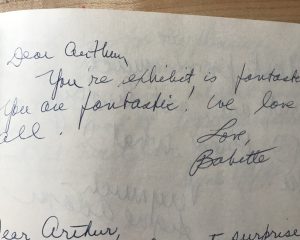 Dear Arthur,
You're exhibit is fantastic
You are fantastic! We love
all!
Love,
Babette
Dear Arthur,
surprise